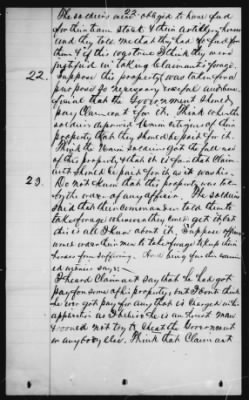 22
The soldiers were obliged to have feed
for their team stock & their cavalry horses
and they told me that they had to feed for
them & if this was true I think they were
justified in taking Claimant's forage.
22. Suppose this property was taken for a
purpose so necessary useful and bene-
ficial that the Government should
pay Claimant for it. Think when the
soldiers deprived Claimant of
property that they should be paid for it.
Think the Union soldiers got the full use
of this property & that it is fair that Claim-
ant should be paid for it as it was his.
23. Do not know that this property was taken
by the order of any officer. The soldiers
said that their Commander told them to
take forage wherever they could get it &
this is all I know about it. Suppose officers
would order their men to take forage to keep their
horses from suffering. And being further exam-
ined witness says:—
I heard Claimant say that he had got
pay for some of his property, but I don't think
he ever got pay for any that is charged in the
application as I believe he is an honest man
& would not try to cheat the Government
or anybody else. Think that Claimant